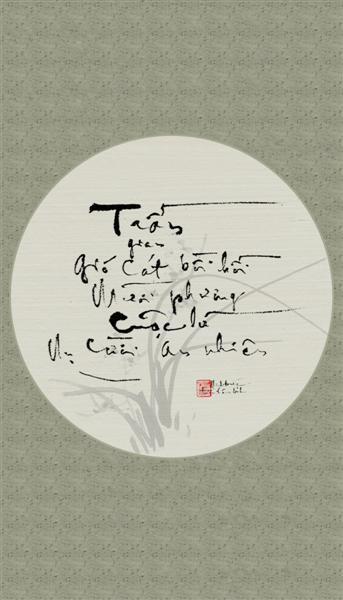 Trần
gian
gió cát bồi hồi
Mười phương
cuộc lữ
nụ cười an nhiên